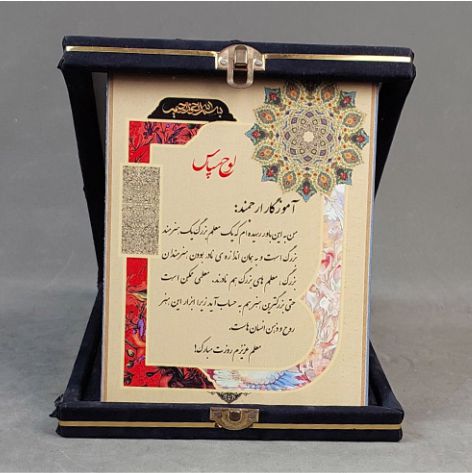 بسم الله الرحمن الرحیم
لوح سپاس
آموزگار ارجمند:
من به این باور رسیده ام که یک معلم بزرگ یک هنرمند
بزرگ است و به همان اندازه ی نادر بودن هنرمندان
بزرگ، معلم های بزرگ هم نادرند. معلمی ممکن است
حتی بزرگترین هنر هم به حساب آید زیرا ابزار این هنر
روح و ذهن انسان هاست.
معلم عزیزم روزت مبارک!